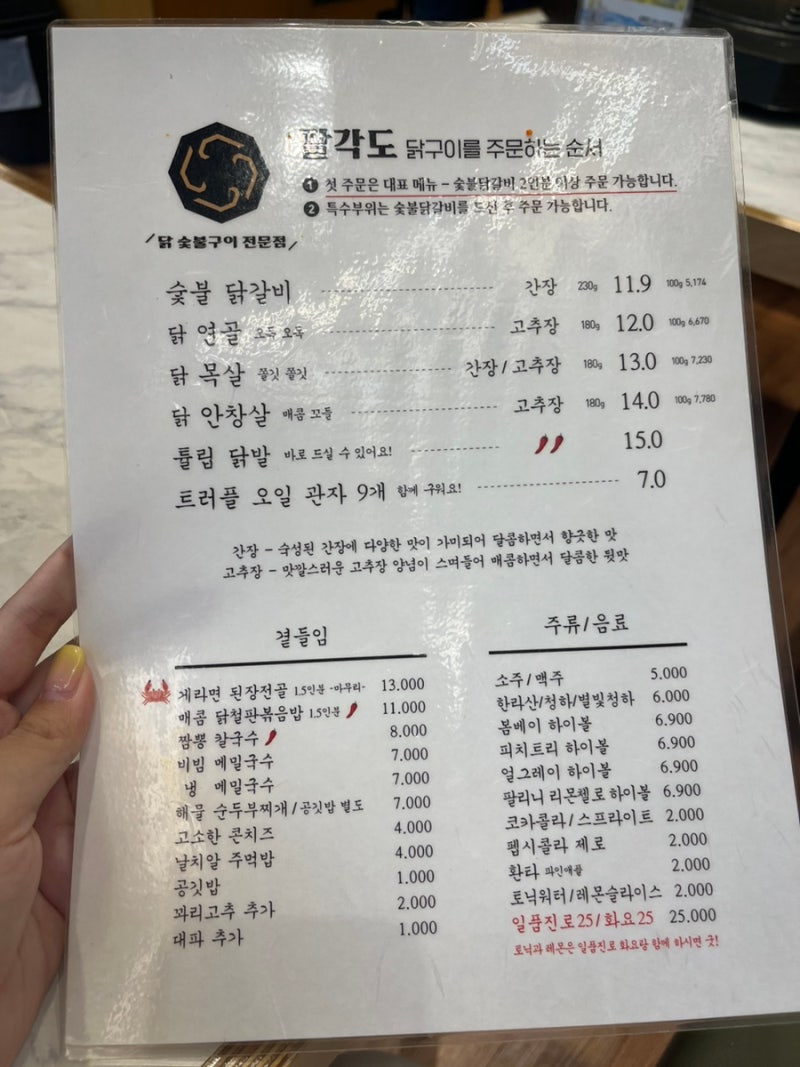 팔각도 닭구이를 주문하는 순서
❶ 첫 주문은 대표 메뉴 - 숯불닭갈비 2인분 이상 주문 가능합니다.
❷ 특수부위는 숯불닭갈비를 드신 후 주문 가능합니다.
닭 숯불구이 전문점
숯불 닭갈비 간장 230g 11.9 100g 5,174
닭 연골 오독 오독 고추장 180g 12.0 100g 6,670
닭 목살 쫄깃 쫄깃 간장 / 고추장 180g 13.0 100g 7,230
닭 안창살 매콤 꼬들 고추장 180g 14.0 100g 7,780
튤립 닭발 바로 드실 수 있어요! 15.0
트러플 오일 관자 9개 함께 구워요! 7.0
간장 - 숙성된 간장에 다양한 맛이 가미되어 달콤하면서 향긋한 맛
고추장 - 맛깔스러운 고추장 양념이 스며들어 매콤하면서 달콤한 뒷맛
곁들임
게라면 된장전골 1.5인분 -마무리- 13.000
매콤 닭철판볶음밥 1.5인분 11.000
짬뽕 칼국수 8.000
비빔 메밀국수 7.000
냉 메밀국수 7.000
해물 순두부찌개 / 공깃밥 별도 7.000
고소한 콘치즈 4.000
날치알 주먹밥 4.000
공깃밥 1.000
꽈리고추 추가 2.000
대파 추가 1.000
주류/음료
소주/맥주 5.000
한라산/청하/별빛청하 6.000
봄베이 하이볼 6.900
피치트리 하이볼 6.900
얼그레이 하이볼 6.900
팔리니 리몬첼로 하이볼 6.900
코카콜라/스프라이트 2.000
펩시콜라 제로 2.000
환타 파인애플 2.000
토닉워터/레몬슬라이스 2.000
일품진로25/화요25 25.000
토닉과 레몬은 일품진로 화요랑 함께 하시면 굿!